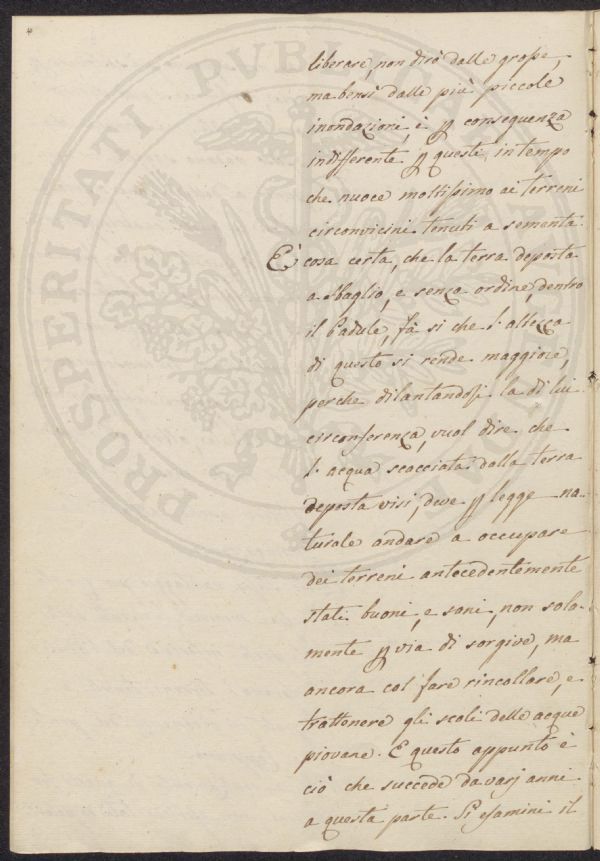 liberare, non dirò dalle grosse,
ma bensì dalle più piccole
inondazioni, è p conseguenza
indifferente p queste, in tempo
che nuoce moltissimo ai terreni
circonvicini tenuti a sementa.
È cosa certa, che la terra deposta
a sbaglio, e senza ordine, dentro
il Padule, fà si che l'altezza
di questo si rende maggiore,
perche dilantandosi la di lui
circonferenza, vuol dire che
l'acqua scacciata dalla terra
deposta visi, deve p legge na-
turale andare a occupare
dei terreni antecedentemente
stati buoni, e sani, non sola-
mente p via di sorgive, ma
ancora col fare rincollare, e
trattenere gli scoli delle acque
piovane. E questo appunto è
ciò che succede da varj anni
a questa parte. Si esamini il
PROSPERITATI PVBLICAE